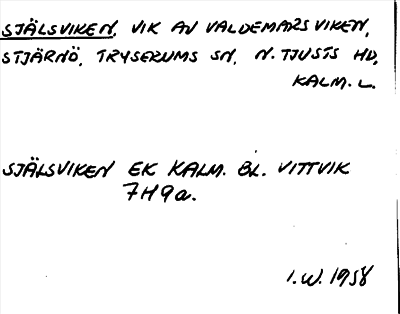 SJÄLSVIKEN, VIK AV VALDEMARSVIKEN,
STJÄRNÖ, TRYSERUMS SN, N. TJUSTS HD,
KALM. L.
SJÄLSVIKEN EK KALM. BL. VITTVIK
7H9a.
I.W. 1958